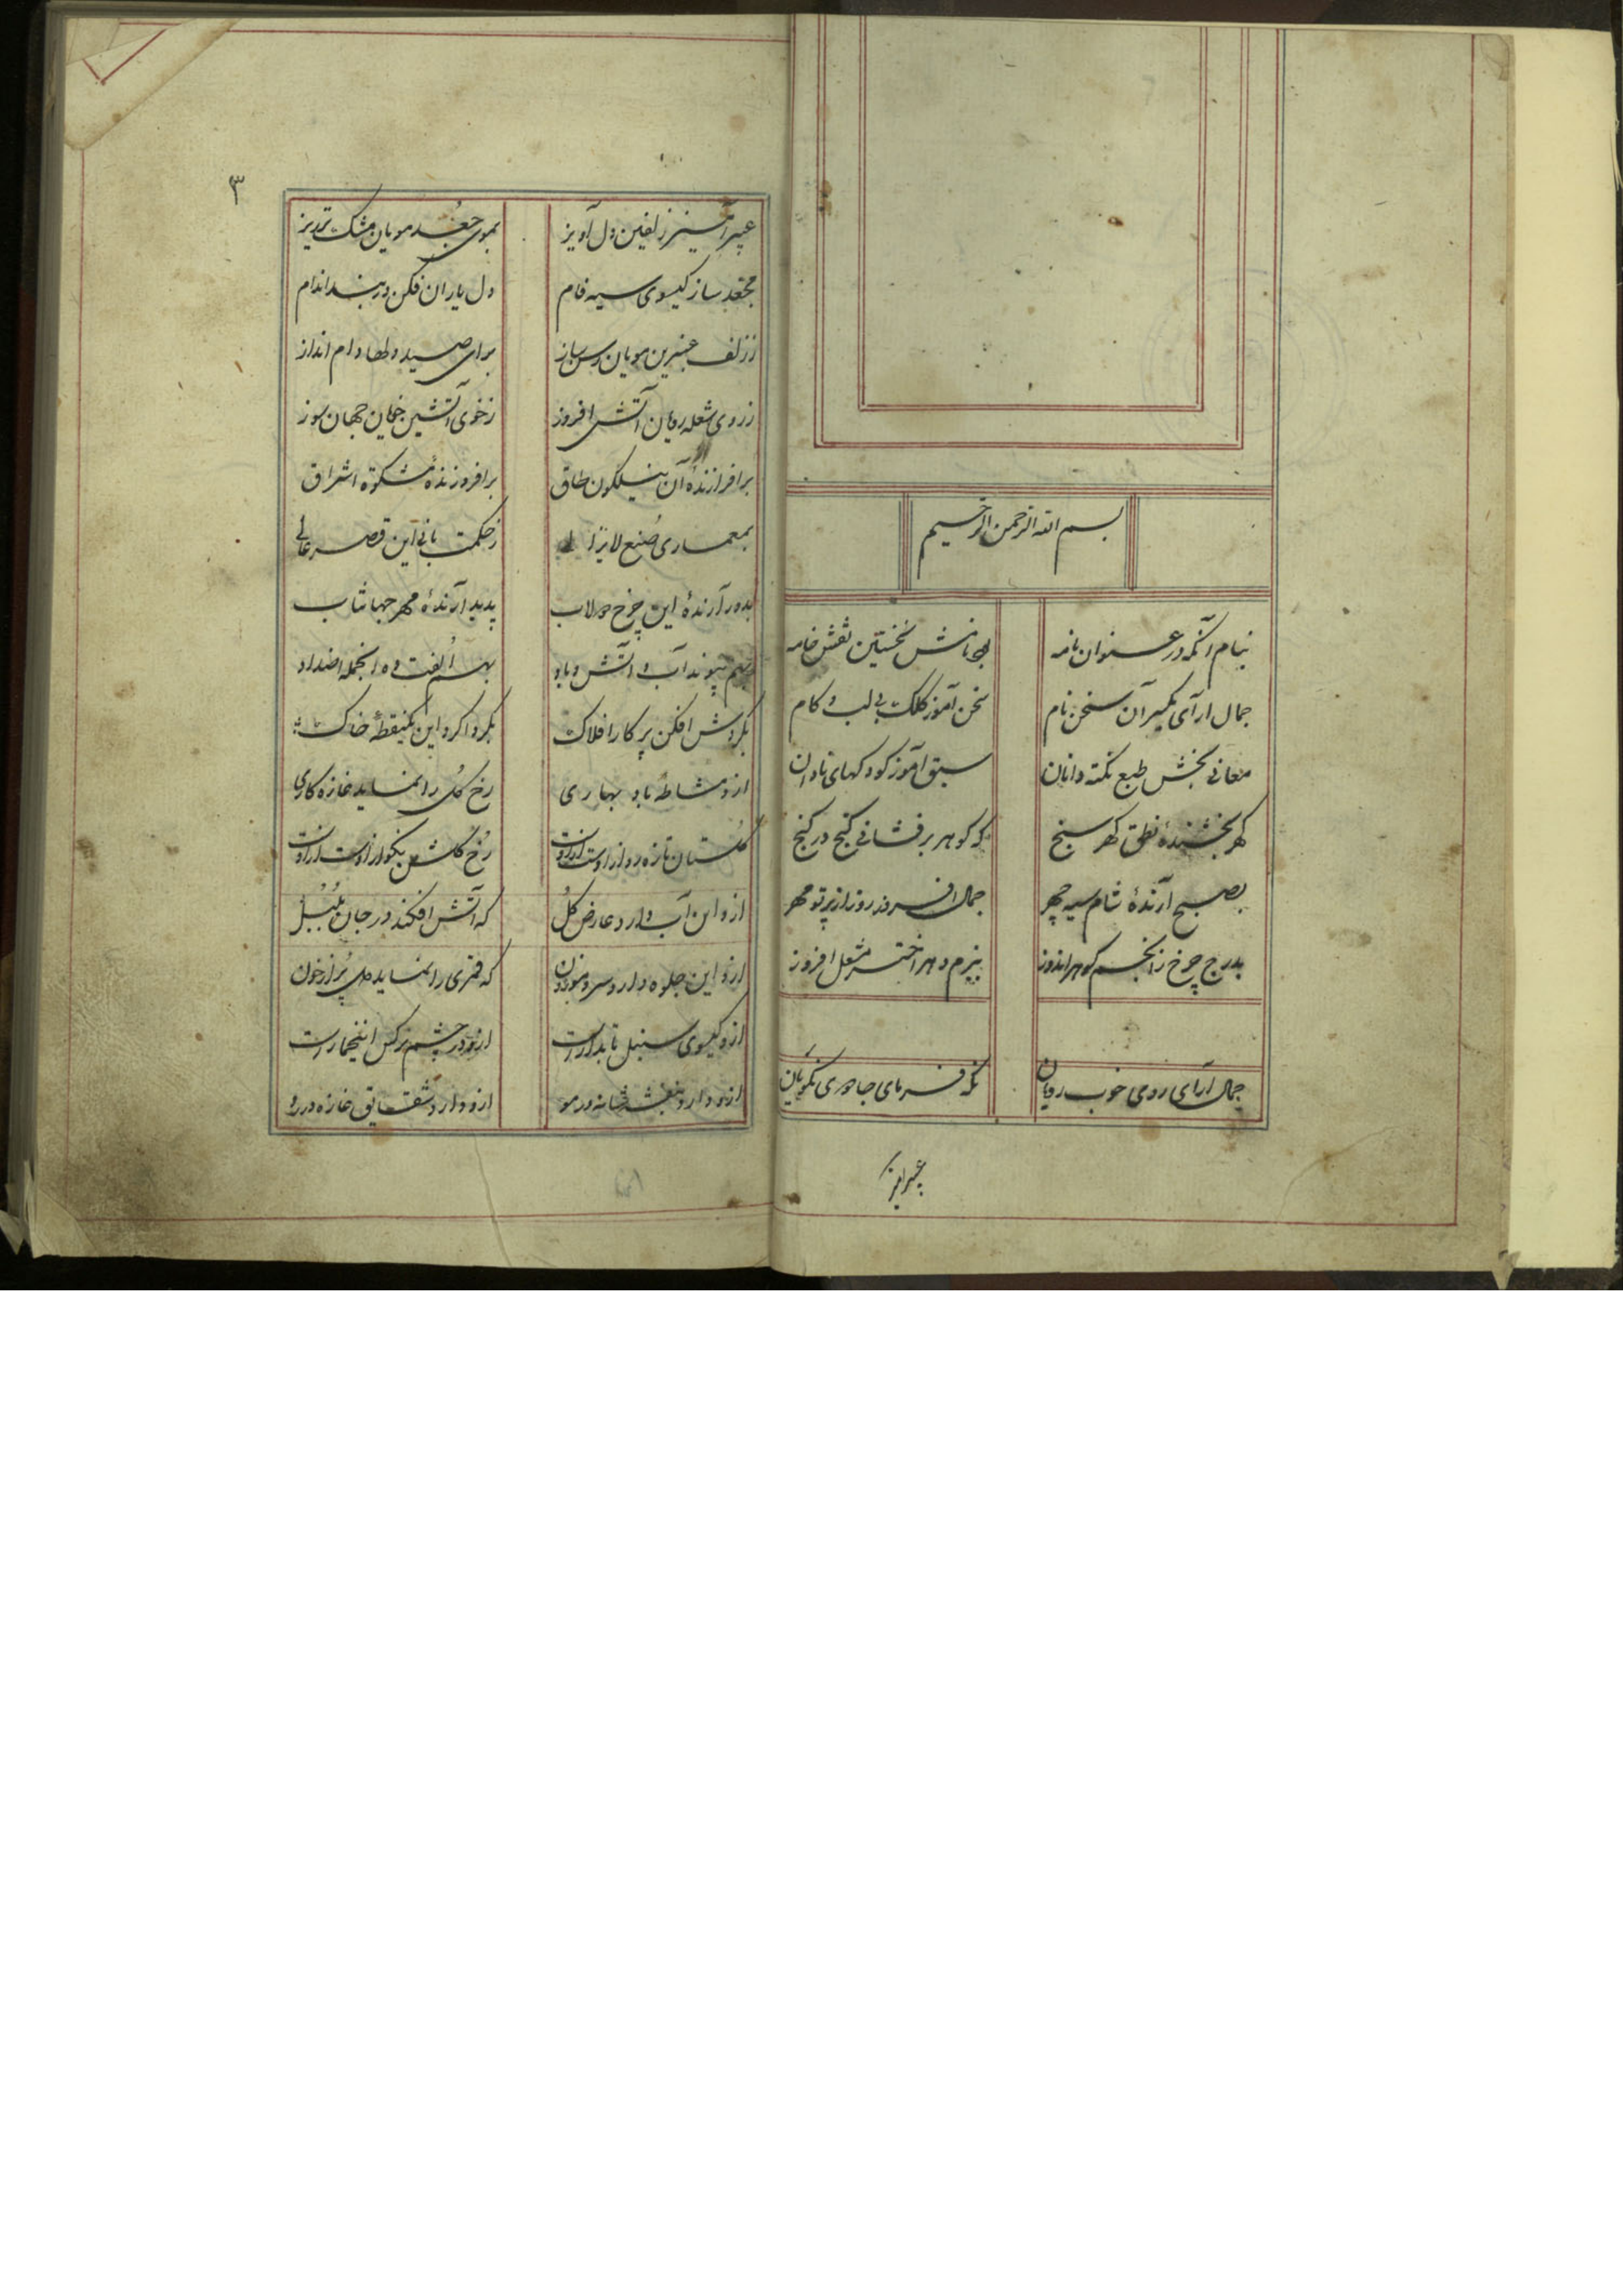 بسم الله الرحمن الرحیم
بنام آنکه در عنوان نامه بود نامش نخستین نقش خامه
جمال آرای بکیرآن سخن نام سخن آموز کلک بی لب و کام
معانی بخش طبع نکته دانان سبق آموز کودکهای نادان
گهر بخشندهٔ نطق گهر سنج که گوهر برفشانی گنج در گنج
بصبح آرندهٔ شام سیه چهر جمال افروز روز از پرتو مهر
بدرج چرخ ز انجم گوهر اندوز ببزم دهر اختر مشعل افروز
جمال آرای روی خوب رویان نگه فرمای جادوی نکویان
عبیرآمیز
۳
عبیرآمیز زلفین دل آویز بموی جعد مویان مشک تر ریز
مجعد ساز گیسوی سیه فام دل یاران فکن در بند اندام
ز زلف عنبرین مویان رسن ساز برای صید دلها دام انداز
ز روی شعله رویان آتش افروز ز خوی آتشین خویان جهان سوز
برافرازندهٔ آن نیلگون طاق برافروزندهٔ مشکوة اشراق
بمعماری صُنع لایزالی ز حکمت بانی این قصر عالی
بدور آرندهٔ این چرخ دولاب پدید آرندهٔ مهر جهانتاب
بهم پیوند آب و آتش و باد بهم اُلفت ده اینجمله اضداد
بگردش افکن پرکار افلاک بگرداگرد این یکنقطهٔ خاک
ازو مشاطهٔ باد بهاری رخ گل را نماید غازه کاری
گلستان تازه رو از اوست از اوست رُخ گلشن نکو از اوست از اوست
ازو این آب دارد عارض گُل که آتش افکند در جان بُلبُل
ازو این جلوه دارد سرو موزون که قمری را نماید دل پُر از خون
ازو گیسوی سنبل تابدارست ازو در چشم نرگس اینخمارست
ازو دارد بنفشه شانه در مو ازو دارد شقایق غازه در رو